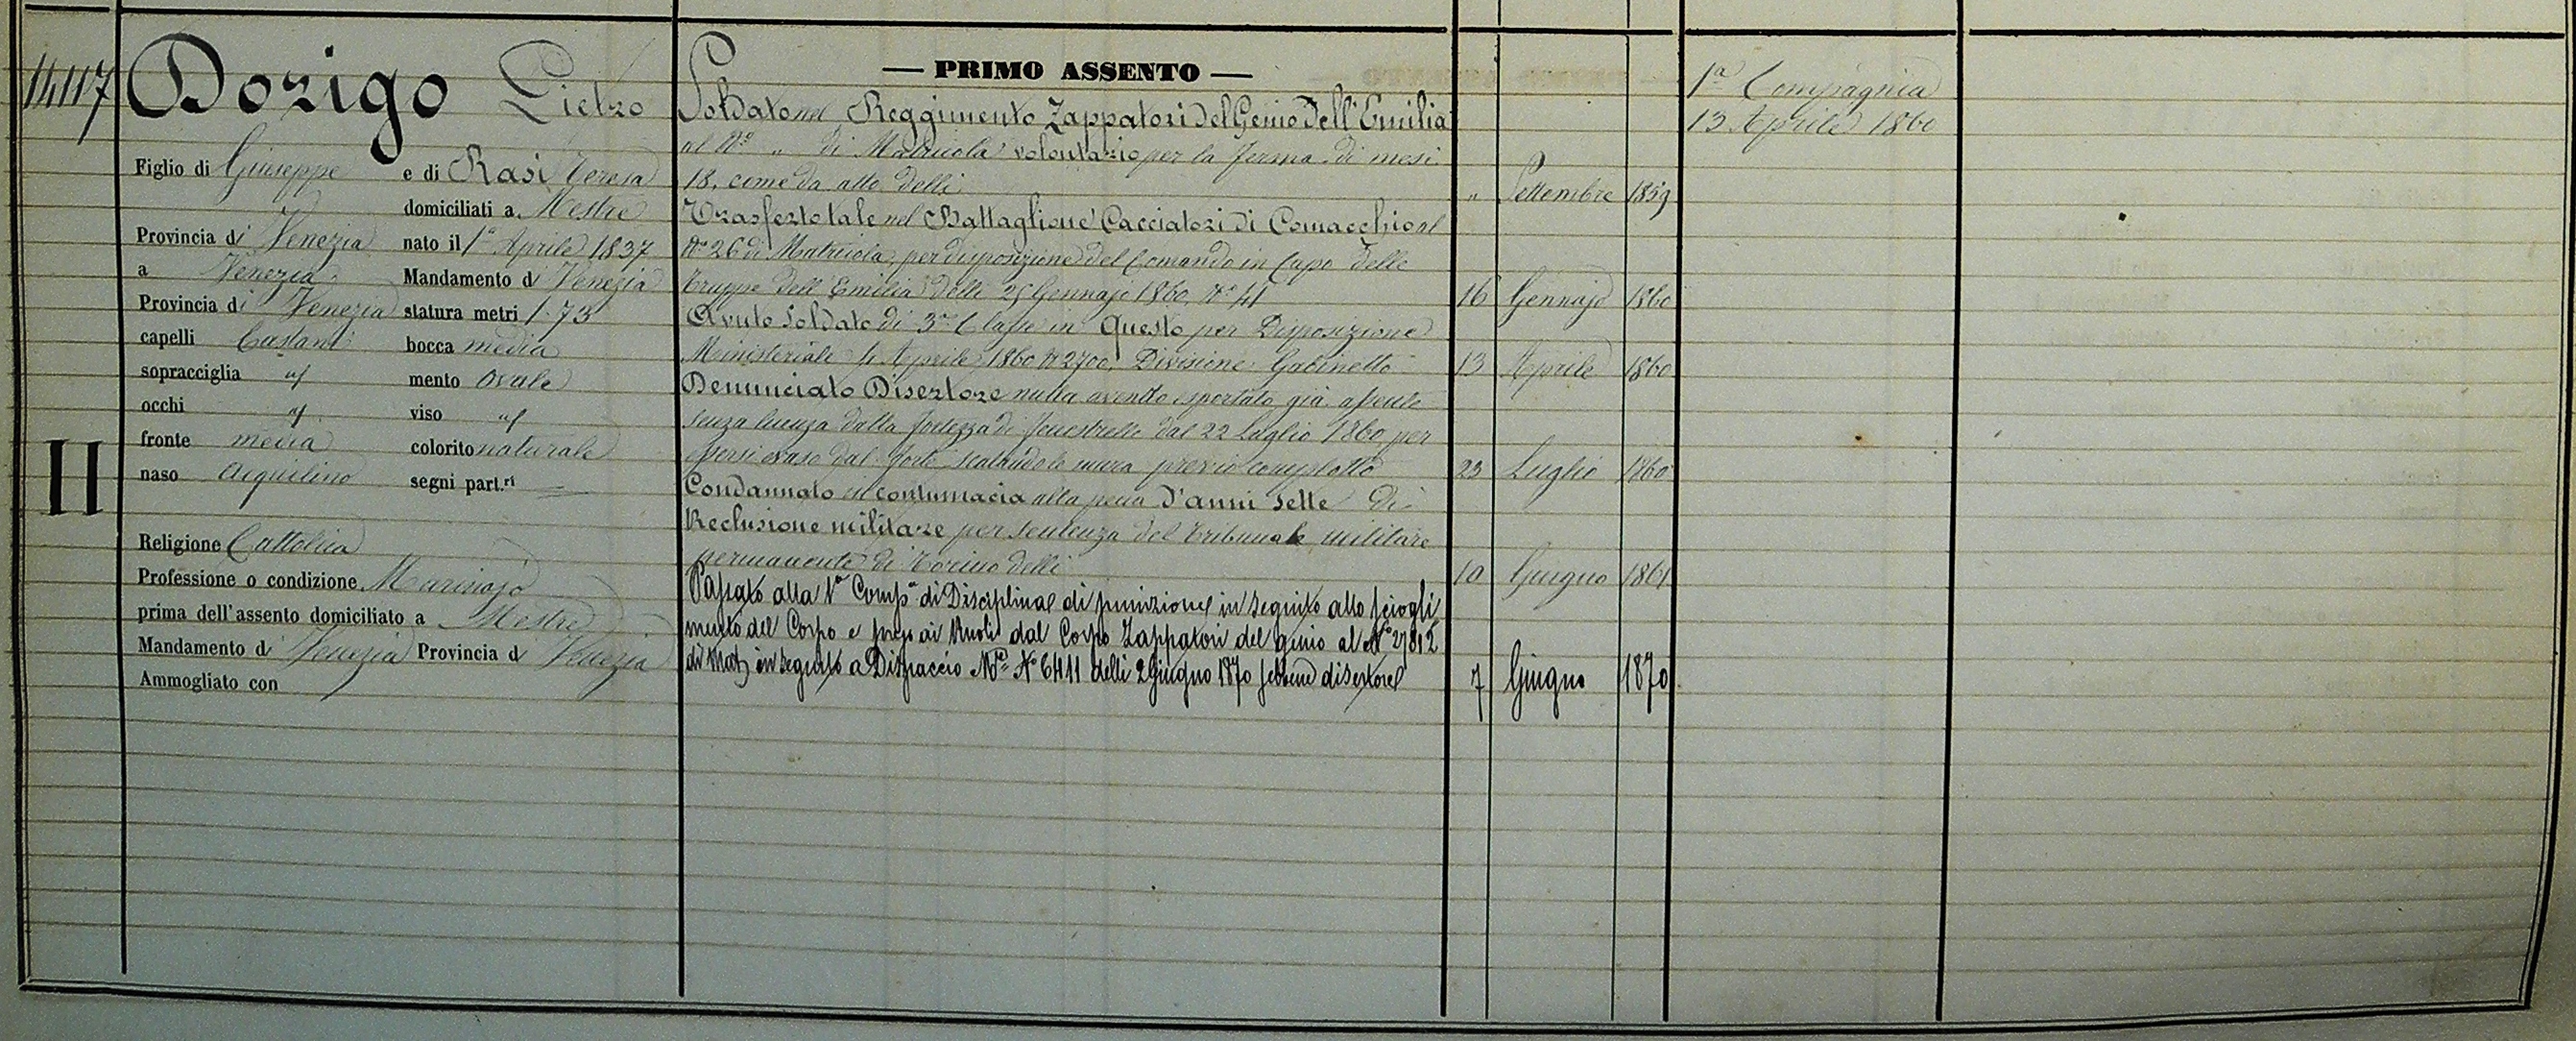 14117
Dorigo Pietro
Figlio di Giuseppe e di Rasi Teresa
domiciliati a Mestre
Provincia di Venezia nato il 1° Aprile 1837
a Venezia Mandamento di Venezia
Provincia di Venezia statura metri 1.73
capelli Castani bocca media
sopracciglia id mento Ovale
occhi id viso id
fronte media colorito naturale
naso Acquilino segni part.ri
II
Religione Cattolica
Professione o condizione Marinajo
prima dell'assento domiciliato a Mestre
Mandamento di Venezia Provincia di Venezia
Ammogliato con
— PRIMO ASSENTO —
Soldato nel Reggimento Zappatori del Genio dell'Emilia
al N° " di Matricola volontario per la ferma di mesi
18. come da atto delli " Settembre 1859
Trasferto tale nel Battaglione Cacciatori di Comacchio al
N° 26 di Matricola, per disposizione del Comando in Capo delle
truppe dell'Emilia delli 25 Gennajo 1860, N° 41 16 Gennajo 1860
Avuto Soldato di 3ª Classe in questo per Disposizione
Ministeriale 4 Aprile 1860 N 2700, Divisione Gabinetto 13 Aprile 1860
Denunciato Disertore nulla avendo esportato già assente
senza licenza dalla fortezza di Fenestrelle dal 22 Luglio 1860 per
essersi evaso dal forte scalandole mura previo complotto 23 Luglio 1860
Condannato in contumacia alla pena d'anni Sette di
Reclusione militare per sentenza del Tribunale militare
permanente di Torino delli 10 Giugno 1861
Passato alla 1ª Compª di Disciplina di punizione in seguito allo sciogli
mento del Corpo e preso ai Ruoli dal Corpo Zappatori del genio al N° 27812
di Mat in seguito a Dispaccio Mle N° 6411 delli 2 Giugno 1870 sebbene disertore 7 Giugno 1870
1ª Compagnia
13 Aprile 1860